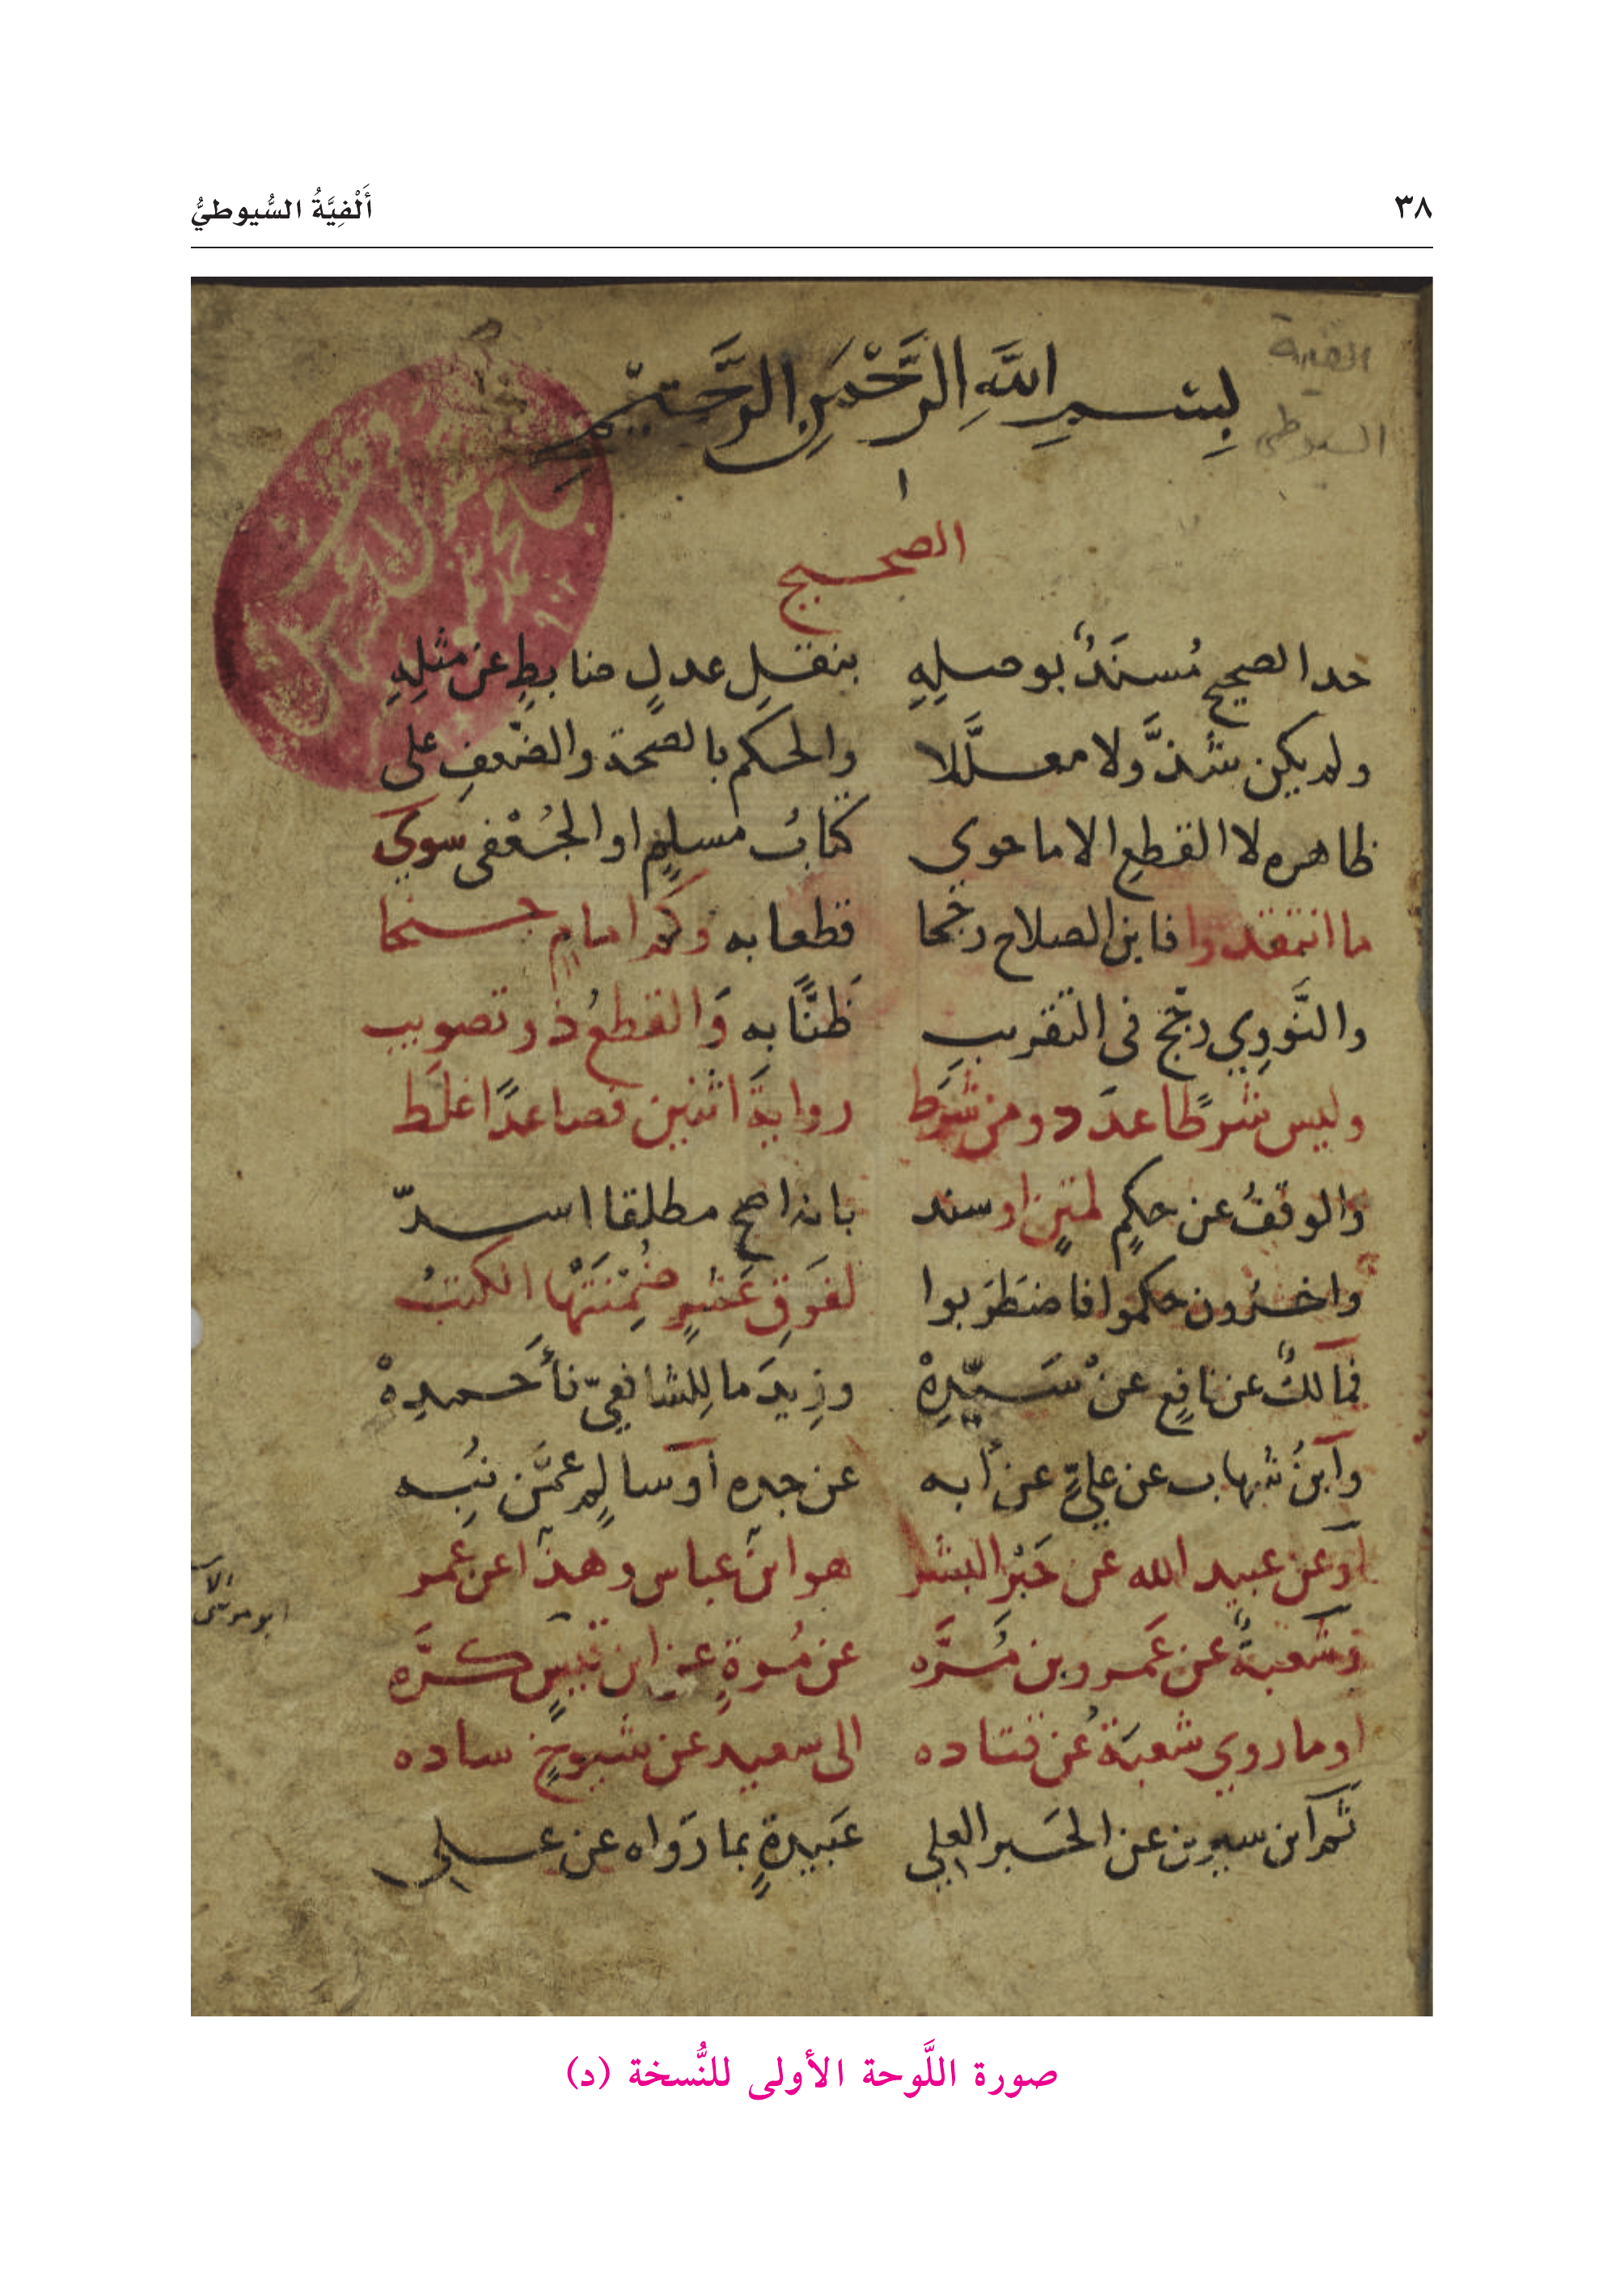 ٣٨ أَلْفِيَّةُ السُّيوطيُّ
الفية
السيوطي
بِسْمِ اللَّهِ الرَّحْمَنِ الرَّحِيمِ
الصحيح
حد الصحيح مُسنَدٌ بوصلِهِ بنقلِ عدلٍ ضابطٍ عن مثلِهِ
ولم يكن شذًّ ولا معلَّلا والحكم بالصحة والضّعفِ على
ظاهره لا القطعِ الا ما حوي كتابُ مسلمٍ او الجُعْفى سوي
ما انتقدوا فابن الصلاح رجّحا قطعا به وكم امامٍ جنحا
والنَّوَوِي رجّح فى التقريبِ ظَنًّا به وَالقطعُ ذو تصويبِ
وليس شرطًا عدَد ومن شَرَط روايةَ اثنين فصاعدًا غلَط
والوقفُ عن حكمٍ لمتنٍ او سند بانه اصح مطلقا اسدّ
واخرُون حكموا فاضطَرَبوا لفَوقِ عَشرٍ ضُمِّنَتْهَا الكتبُ
فمالكٌ عن نافعٍ عنْ سَيّدِهْ وزِيدَ ما لِلشافعِيّ فأَحمدِهْ
وَابنُ شهاب عن عليٍّ عن أبه عن جده أو سالمٍ عمَّن نبِه
أو عن عبيد الله عن حَبْر البشر هو ابن عباس وهذا عن عمر
وشعبةٌ عن عَمرو بن مُرَّه عن مُرةٍ عن ابن قيسٍ كرَّه
او ما روي شعبَةُ عن قتاده الى سعيد عن شيوخٍ ساده
ثم ابن سيرين عن الحَبر العلي عَبيدةٍ بما رَواه عن علي
صورة اللَّوحة الأولى للنُّسخة (د)